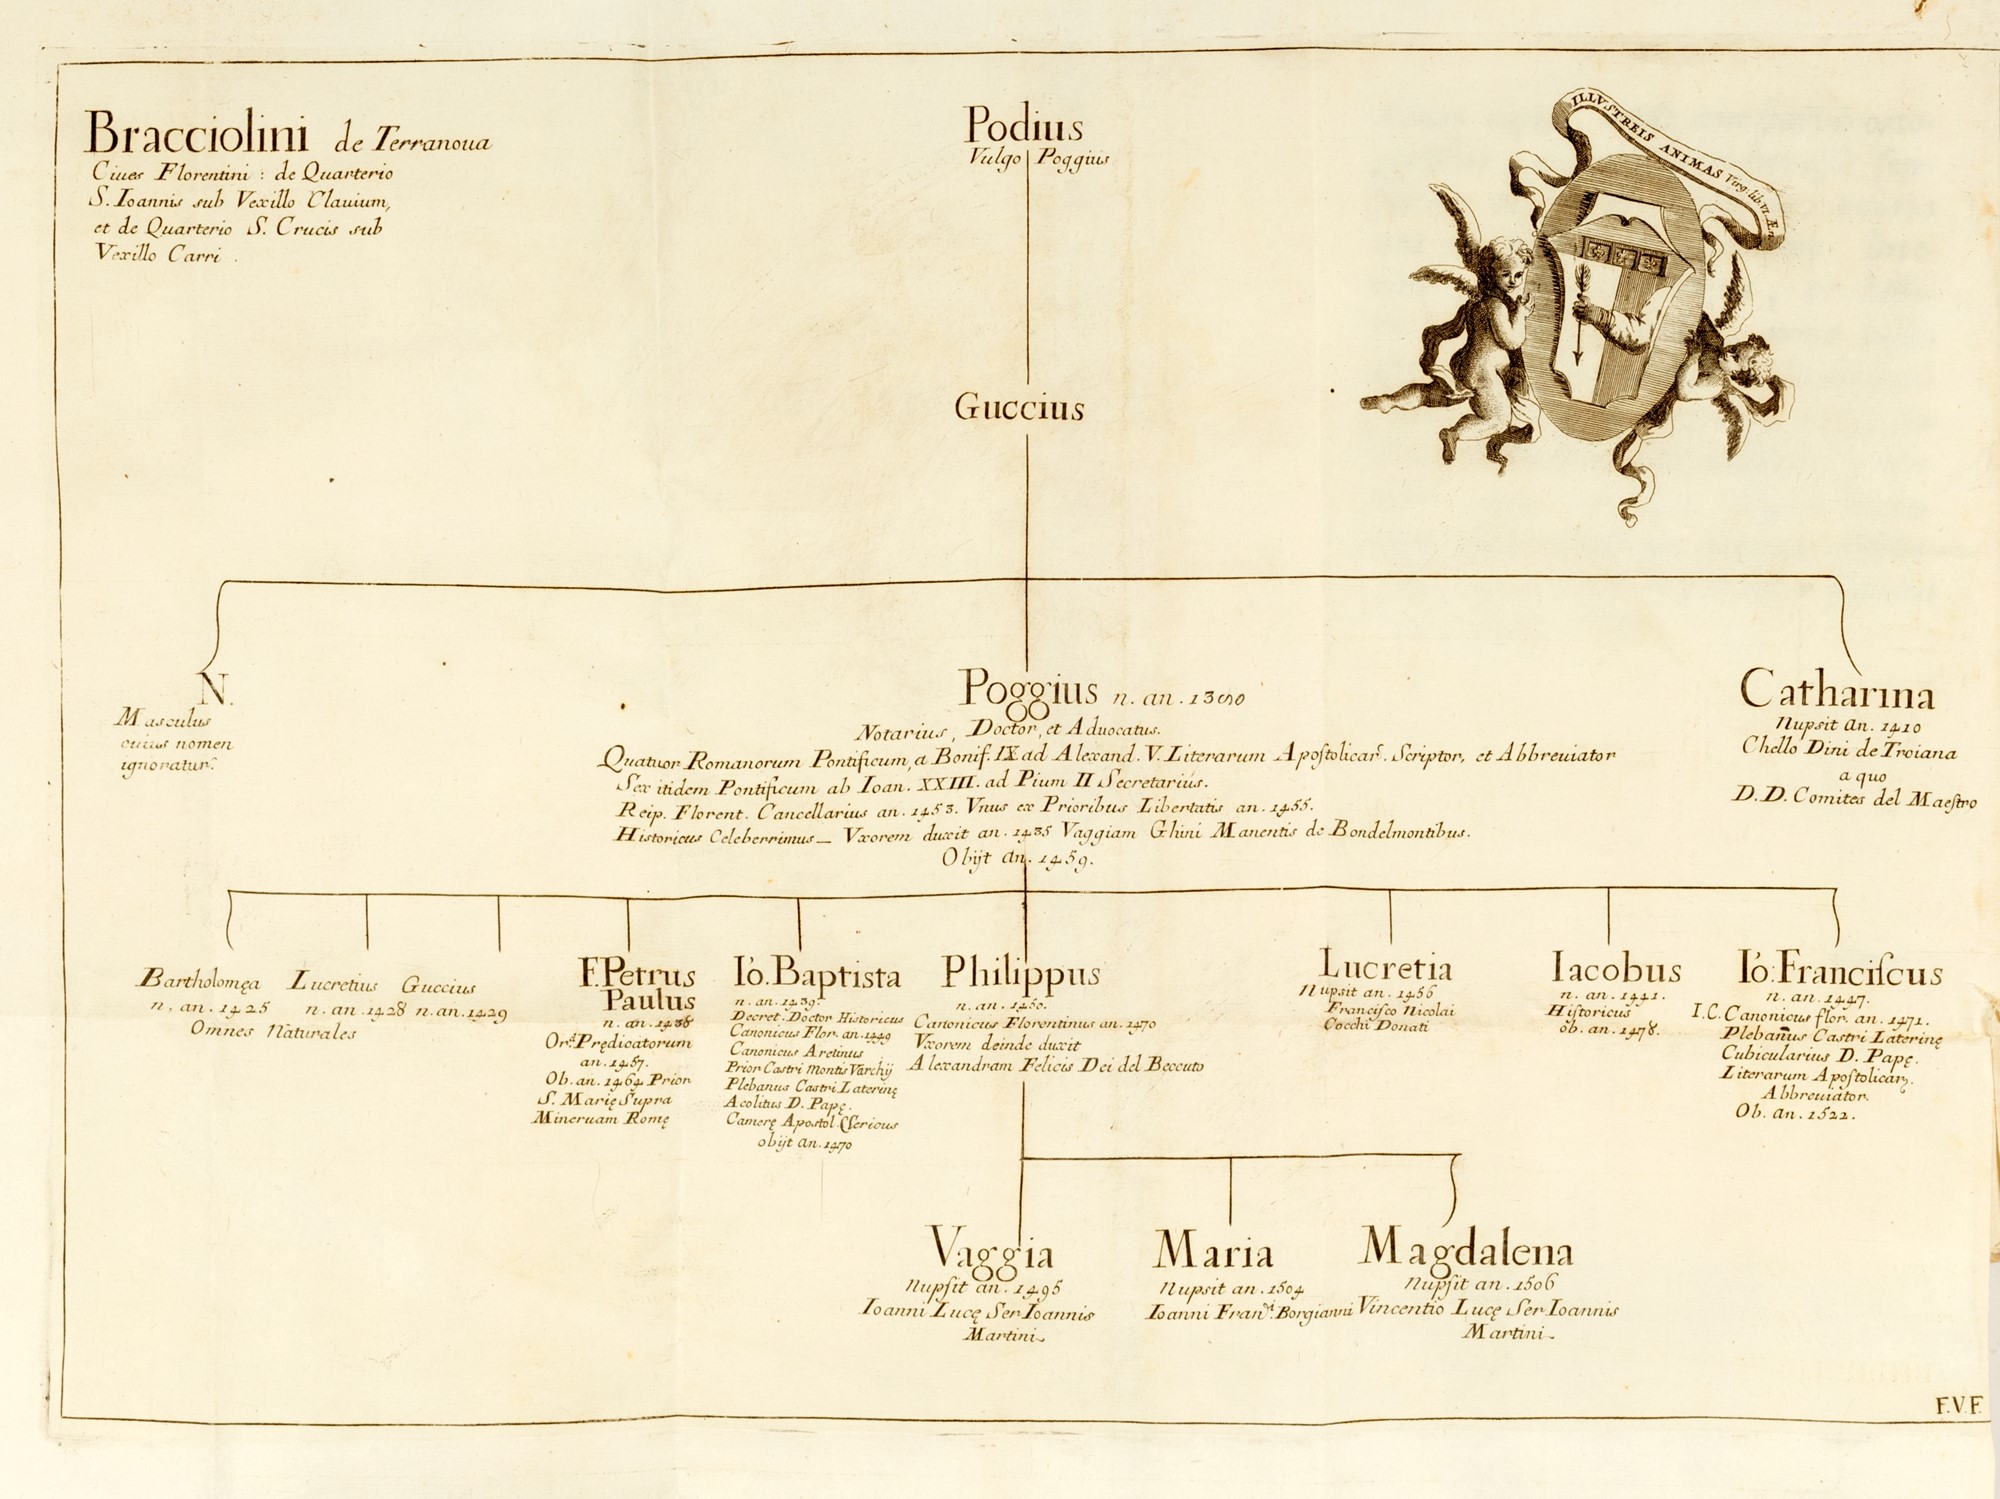 Bracciolini de Terranoua
Ciues Florentini : de Quarterio
S. Ioannis sub Vexillo Clauium,
et de Quarterio S. Crucis sub
Vexillo Carri .
Podius
Vulgo Poggius
ILLVSTREIS ANIMAS Virg. lib. VI. Æn
Guccius
N.
Masculus
cuius nomen
ignoratur.
Poggius n. an. 1380
Notarius, Doctor, et Aduocatus.
Quatuor Romanorum Pontificum, a Bonif. IX ad Alexand. V. Literarum Apostolicar. Scriptor, et Abbreuiator
Sex itidem Pontificum ab Ioan. XXIII. ad Pium II Secretarius.
Reip. Florent. Cancellarius an. 1453. Vnus ex Prioribus Libertatis an. 1455.
Historicus Celeberrimus _ Vxorem duxit an. 1435 Vaggiam Ghini Manentis de Bondelmontibus.
Obijt an. 1459.
Catharina
Nupsit an. 1410
Chello Dini de Troiana
a quo
D. D. Comites del Maestro
Bartholomęa
n. an. 1425
Lucretius
n. an. 1428
Guccius
n. an. 1429
Omnes Naturales
F. Petrus
Paulus
n. an. 1438
Ord. Prędicatorum
an. 1457.
Ob. an. 1464 Prior
S. Marię Supra
Mineruam Romę
Io. Baptista
n. an. 1439.
Decret. Doctor Historicus
Canonicus Flor. an. 1449
Canonicus Aretinus
Prior Castri Montis Varchij
Plebanus Castri Laterinę
Acolitus D. Papę.
Camerę Apostol. Clericus
obijt an. 1470
Philippus
n. an. 1450.
Canonicus Florentinus an. 1470
Vxorem deinde duxit
Alexandram Felicis Dei del Beccuto
Lucretia
Nupsit an. 1456
Francisco Nicolai
Cocchi Donati
Iacobus
n. an. 1441.
Historicus
ob. an. 1478.
Io: Franciscus
n. an. 1447.
I. C. Canonicus flor. an. 1471.
Plebanus Castri Laterinę
Cubicularius D. Papę.
Literarum Apostolicar.
Abbreuiator.
Ob. an. 1522.
Vaggia
Nupsit an. 1495
Ioanni Lucę Ser Ioannis
Martini
Maria
Nupsit an. 1504
Ioanni Fran. Borgianni
Magdalena
Nupsit an. 1506
Vincentio Lucę Ser Ioannis
Martini
F. V. F.